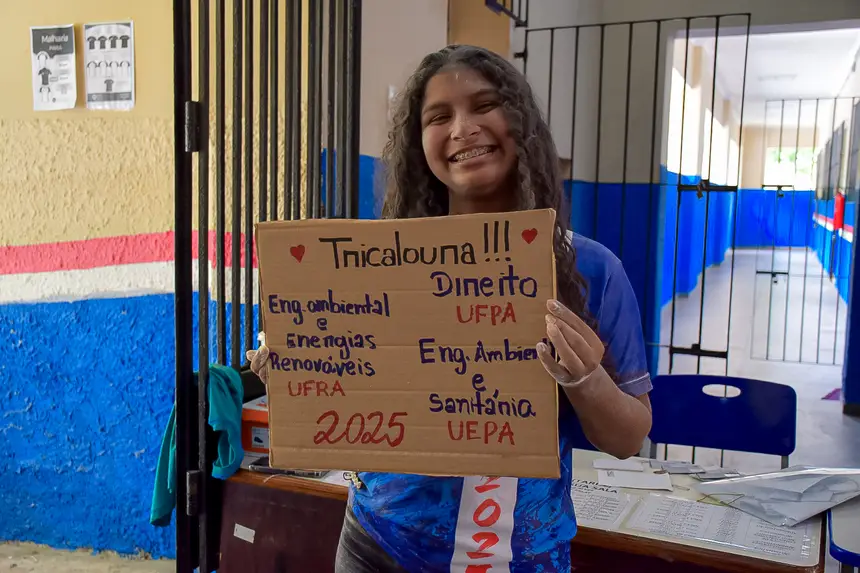 Malharia
Tricalouna!!!
Direito
UFPA
Eng. ambiental
e
Energias
Renováveis
UFRA
2025
Eng. Ambien
e
sanitária
UEPA
2025